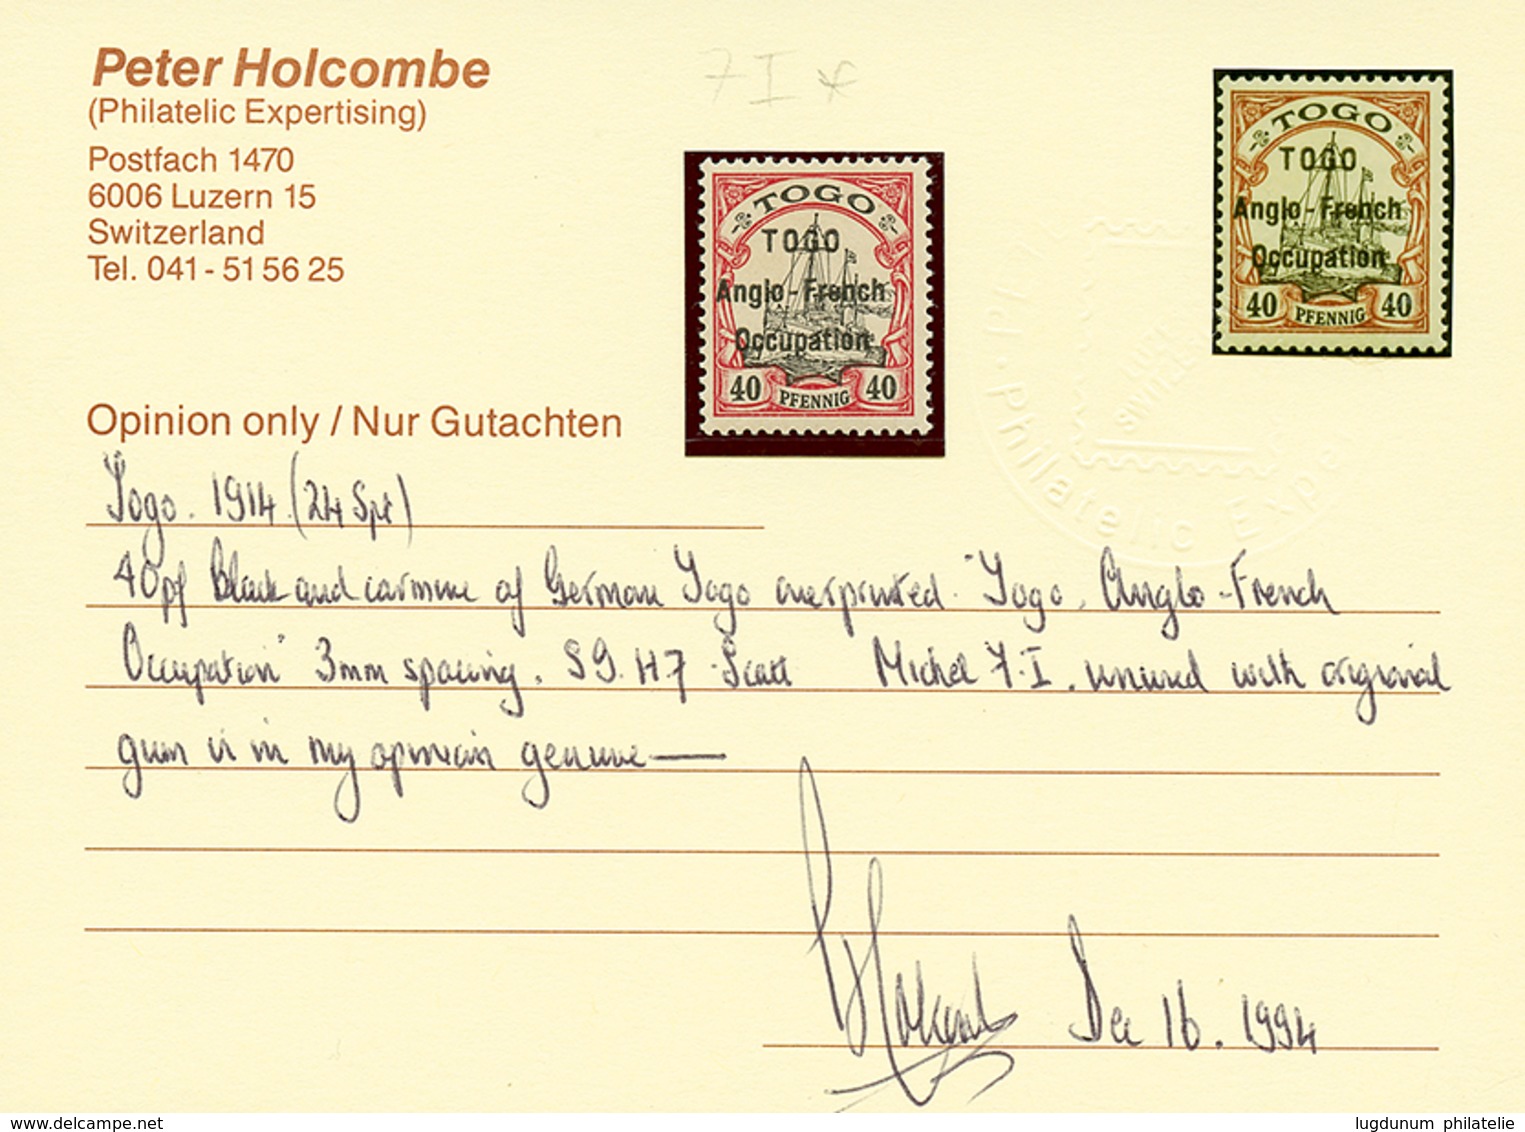 Peter Holcombe
(Philatelic Expertising)
Postfach 1470
6006 Luzern 15
Switzerland
Tel. 041 - 51 56 25
7 I *
TOGO
TOGO
Anglo - French
Occupation
40 PFENNIG 40
TOGO
TOGO
Anglo - French
Occupation
40 PFENNIG 40
Philatelic Expe
Opinion only / Nur Gutachten
Togo. 1914. (24 Spt)
40pf Black and carmine of German Togo overprinted "Togo. Anglo-French
Occupation" 3mm spacing. SG. H7 Scott Michel 7.I. unused with original
gum is in my opinion genuine —
P Holcombe Dec 16. 1994
www.delcampe.net
lugdunum philatelie